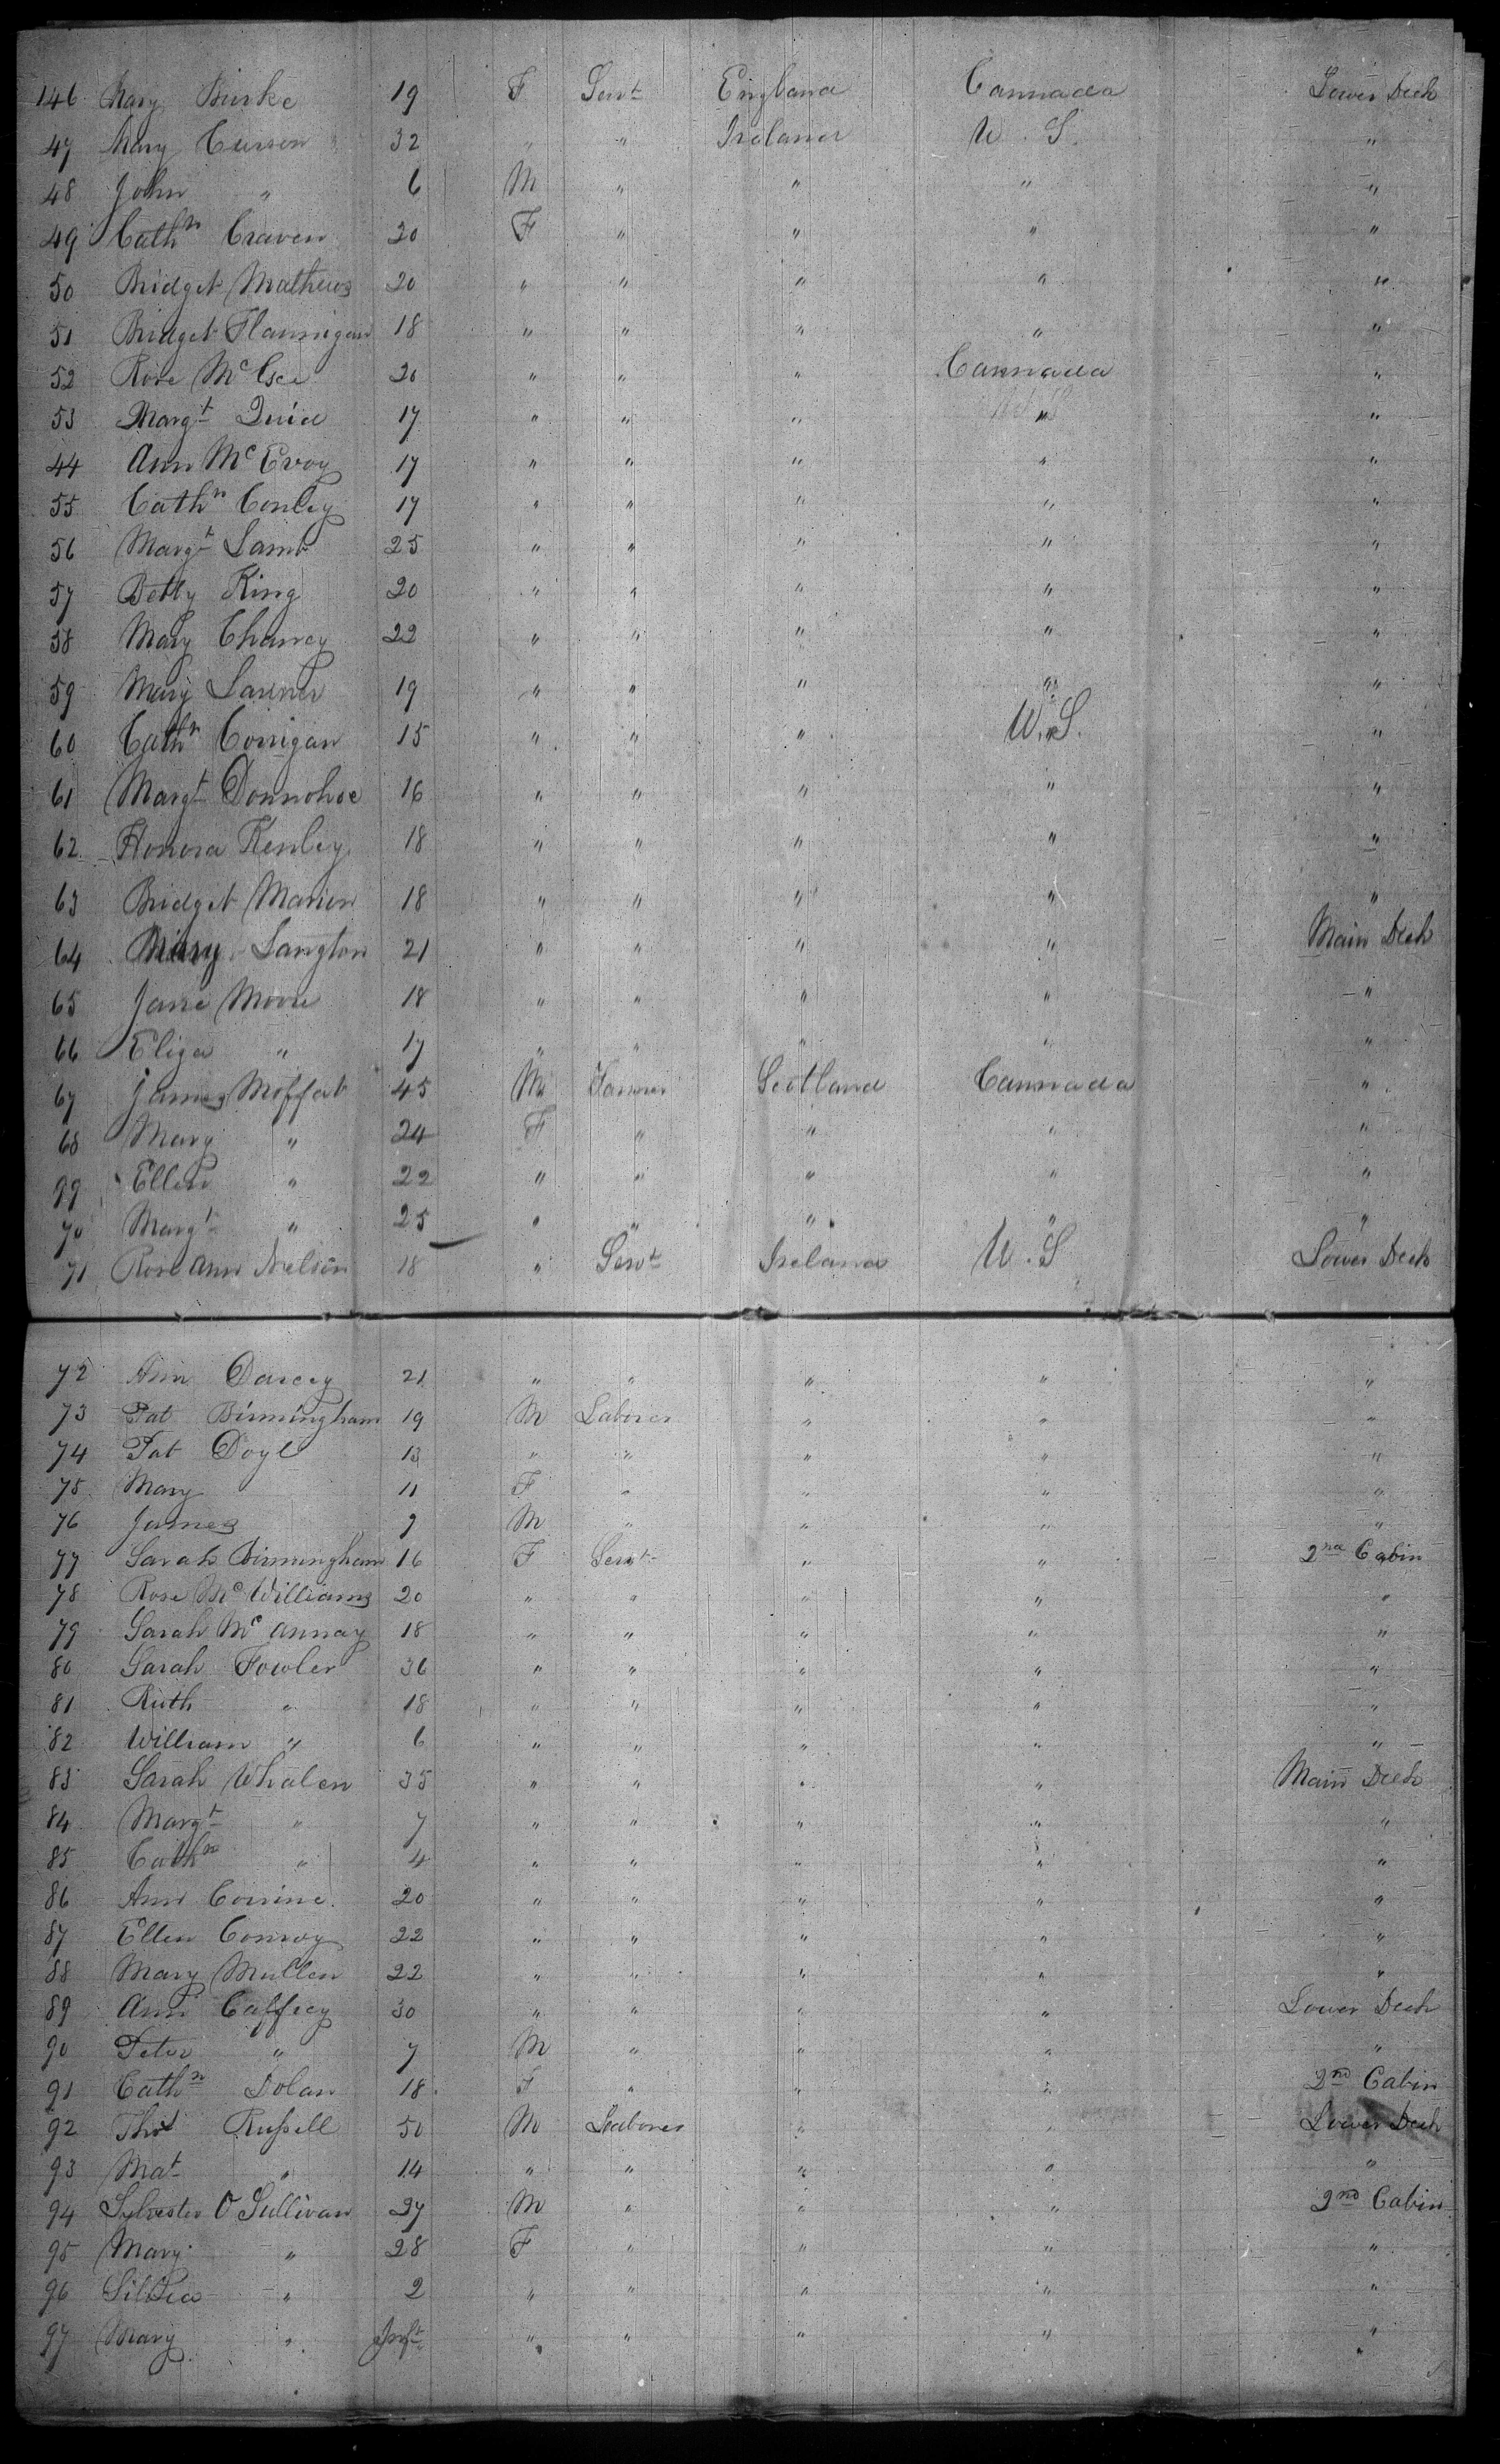 146 Mary Burke 19 F Servt England Cannada Lower Deck
47 Mary Curson 32 " " Ireland U. S. "
48 John " 6 M " " " "
49 Cathn Craven 20 F " " " "
50 Bridget Mathews 20 " " " " "
51 Bridget Flannigan 18 " " " " "
52 Rose McGee 20 " " " Cannada "
53 Margt 17 " " " " "
44 Ann McEvoy 17 " " " " "
55 Cathn Conley 17 " " " " "
56 Margt Lamb 25 " " " " "
57 Betty King 20 " " " " "
58 Mary 22 " " " " "
59 Mary 19 " " " " "
60 Cathn Corrigan 15 " " " U.S. "
61 Margt Donnohoe 16 " " " " "
62 Honora Henley 18 " " " " "
63 Bridget Marion 18 " " " " "
64 Mary Langton 21 " " " " Main Deck
65 Jane Moore 18 " " " " "
66 Eliza " 17 " " " " "
67 James Moffat 45 M Farmer Scotland Cannada "
68 Mary " 24 F " " " "
99 Ellen " 22 " " " " "
70 Margt " 25 " " " " "
71 Rose Ann Nelson 18 " Servt Ireland U. S Lower Deck
72 Ann Darcey 21 " " " " "
73 Pat Birmingham 19 M Laborer " " "
74 Pat Doyle 13 " " " " "
75 Mary 11 F " " " "
76 James 9 M " " " "
77 Sarah Birmingham 16 F Servt " " 2nd Cabin
78 Rose McWilliams 20 " " " " "
79 Sarah McAnnay 18 " " " " "
80 Sarah Fowler 36 " " " " "
81 Ruth " 18 " " " " "
82 William " 6 " " " " "
83 Sarah Whalen 35 " " " " Main Deck
84 Margt " 7 " " " " "
85 Cathn " 4 " " " " "
86 Ann Corrine 20 " " " " "
87 Ellen Conroy 22 " " " " "
88 Mary Mullen 22 " " " " "
89 Ann Caffrey 30 " " " " Lower Deck
90 Peter " 7 M " " " "
91 Cathn Dolan 18 F " " " 2nd Cabin
92 Thos Russell 50 M Laborer " " Lower Deck
93 Mat " 14 " " " " "
94 Sylvester O Sullivan 27 M " " " 2nd Cabin
95 Mary " 28 F " " " "
96 " 2 " " " " "
97 Mary " Inft " " " " "